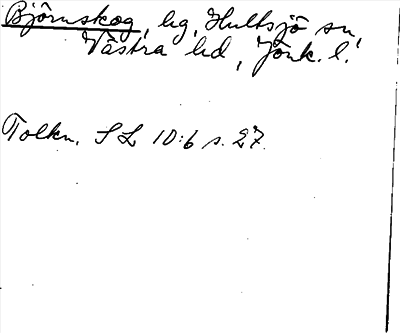 Björnskog, hg, Hultsjö sn,
Västra hd, Jönk. l.
Tolkn. SL 10:6 s. 27.